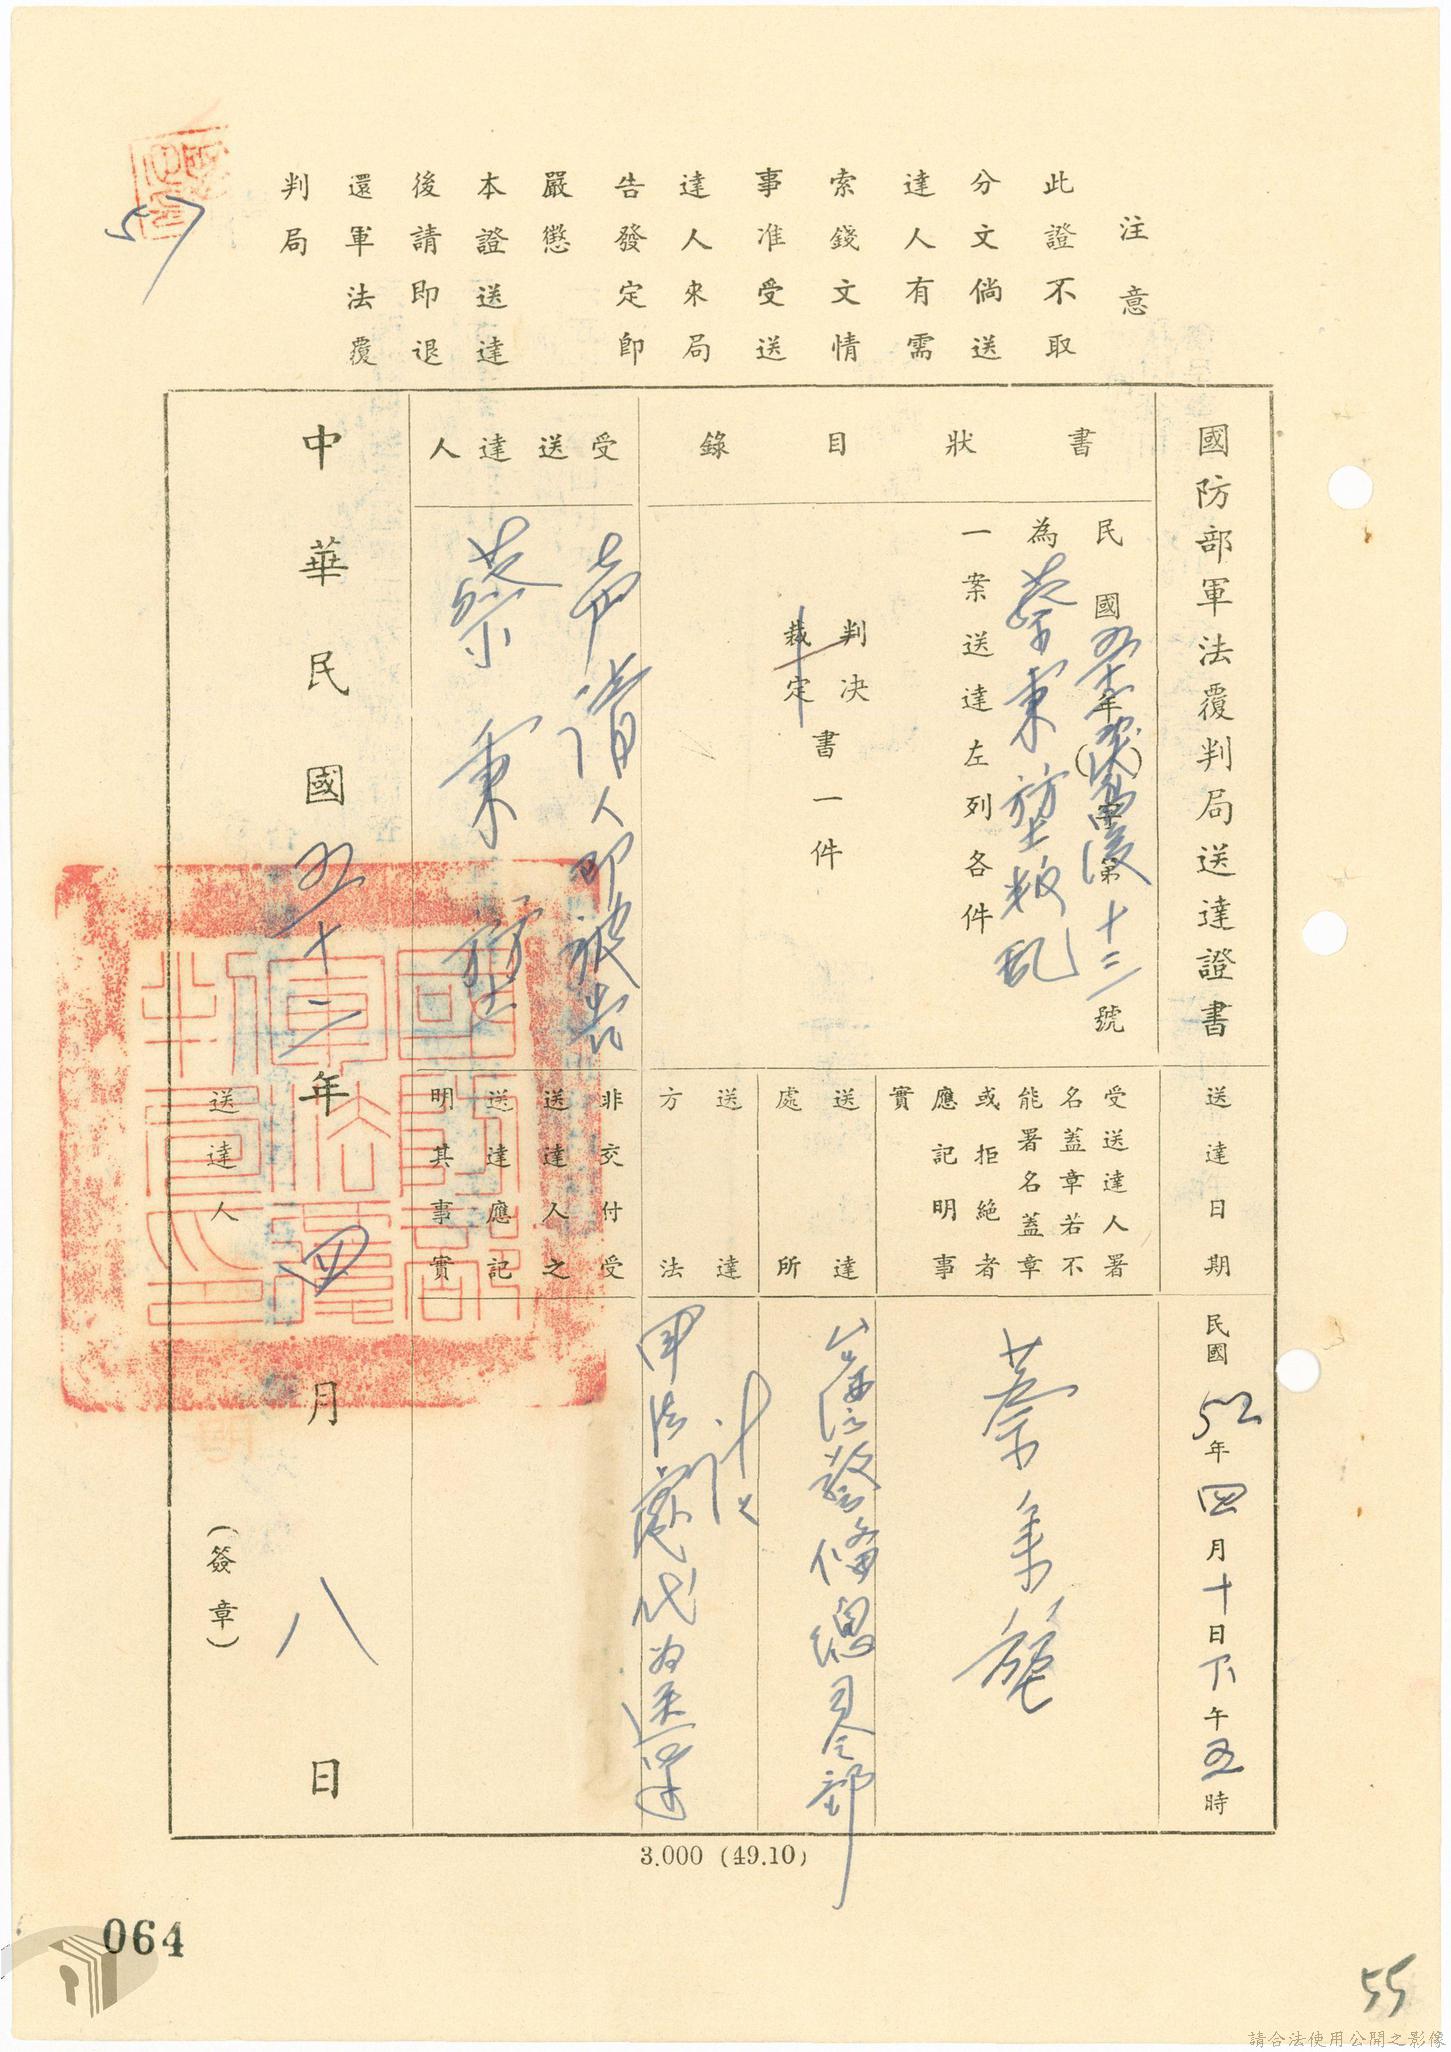 注意
此證不取
分文倘送
達人有需
索錢文情
事准受送
達人來局
告發定即
嚴懲
本證送達
後請即退
還軍法覆
判局
57
國防部軍法覆判局送達證書
書狀目錄
民國五十二年()字第十三號
為蔡東堃叛乱
一案送達左列各件
判決
裁定
書一件
受送達人
声请人即被告
蔡東堃
送達日期
民國52年四月十日下午五時
受送達人署
名蓋章若不
能署名蓋章
或拒絕者
應記明事
實
送達
處所
台灣警備總司令部
送達
方法
軍法處代為送達
非交付受
送達人之
送達應記
明其事實
中華民國五十二年四月八日
送達人
(簽章)
3.000 (49.10)
064
55
請合法使用公開之影像